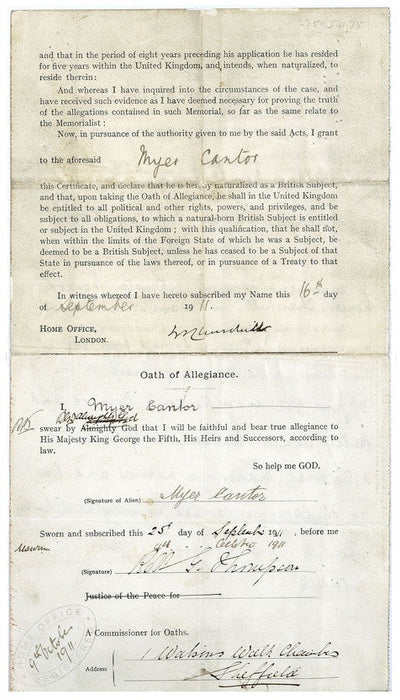 and that in the period of eight years preceding his application he has resided
for five years within the United Kingdom, and intends, when naturalized, to
reside therein:
And whereas I have inquired into the circumstances of the case, and
have received such evidence as I have deemed necessary for proving the truth
of the allegations contained in such Memorial, so far as the same relate to
the Memorialist:
Now, in pursuance of the authority given to me by the said Acts, I grant
to the aforesaid Myer Cantor
this Certificate, and declare that he is hereby naturalized as a British Subject,
and that, upon taking the Oath of Allegiance, he shall in the United Kingdom
be entitled to all political and other rights, powers, and privileges, and be
subject to all obligations, to which a natural-born British Subject is entitled
or subject in the United Kingdom; with this qualification, that he shall not,
when within the limits of the Foreign State of which he was a Subject, be
deemed to be a British Subject, unless he has ceased to be a Subject of that
State in pursuance of the laws thereof, or in pursuance of a Treaty to that
effect.
In witness whereof I have hereto subscribed my Name this 16th day
of September 1911.
HOME OFFICE,
LONDON.
Oath of Allegiance.
I, Myer Cantor
swear by Almighty God that I will be faithful and bear true allegiance to
His Majesty King George the Fifth, His Heirs and Successors, according to
law.
So help me GOD.
(Signature of Alien) Myer Cantor
Sworn and subscribed this 25th day of September 1911, before me
resworn October 1911
(Signature) G. Thompson
Justice of the Peace for
A Commissioner for Oaths.
Address 1 Watsons Walk Chambers
Sheffield
HOME OFFICE
9th October
1911